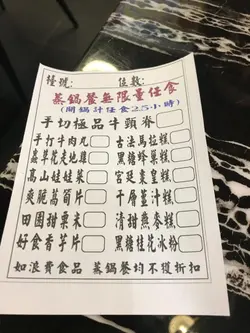 檯號: 位數:
蒸鍋餐無限量任食
(開鍋計任食2.5小時)
手切極品牛頸脊
手打牛肉丸 古法馬拉糕
蟲草花走地雞 黑糖珍菓糕
高山娃娃菜 宮廷東皇糕
爽脆萵筍片 千層薑汁糕
田園甜粟米 清甜燕麥糕
好食香芋片 黑糖桂花冰粉
如浪費食品 蒸鍋餐均不獲折扣